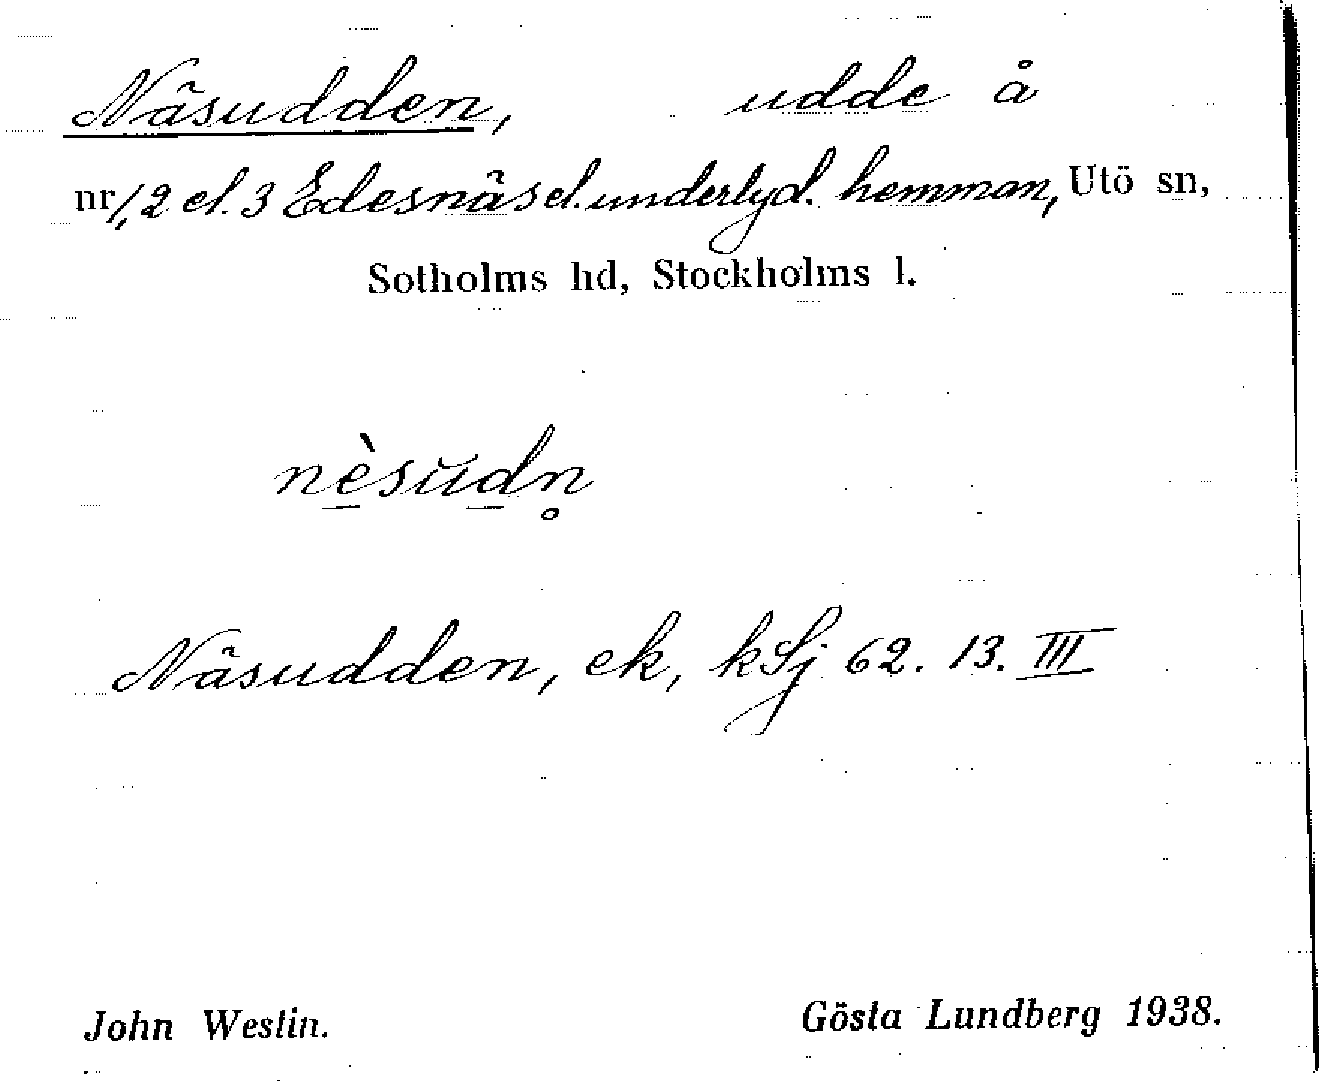 Näsudden, udde å
nr 1, 2 el. 3 Edesnäs el. underlyd. hemman, Utö sn,
Sotholms hd, Stockholms l.
nèsŭdn̥
Näsudden, ek, kSj 62. 13. III
John Westin. Gösta Lundberg 1938.